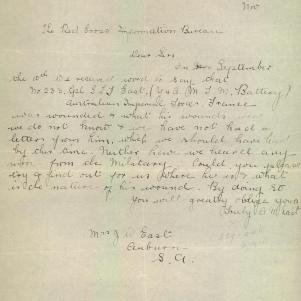 Nov
The Red Cross Information Bureau
Dear Sirs
On September
the 10th we received word to say that
No 233. Gpl East.
Australian Imperial Force. France
was wounded & what his wounds were
we do not know & we have not had a
letter from him, which we should have had
by this time. Neither have we received any
word from the Military. Could you please
try & find out for us where he is & what
is the nature of his wound. By doing so
You will greatly oblige yours
Truly East
Mrs J East
Auburn
S. A.